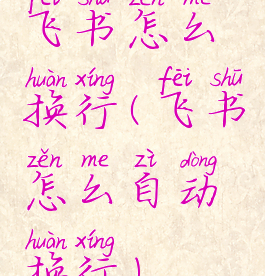 fēi shū zěn me
飞书怎么
huàn xíng fēi shū
换行(飞书
zěn me zì dòng
怎么自动
huàn xíng
换行)